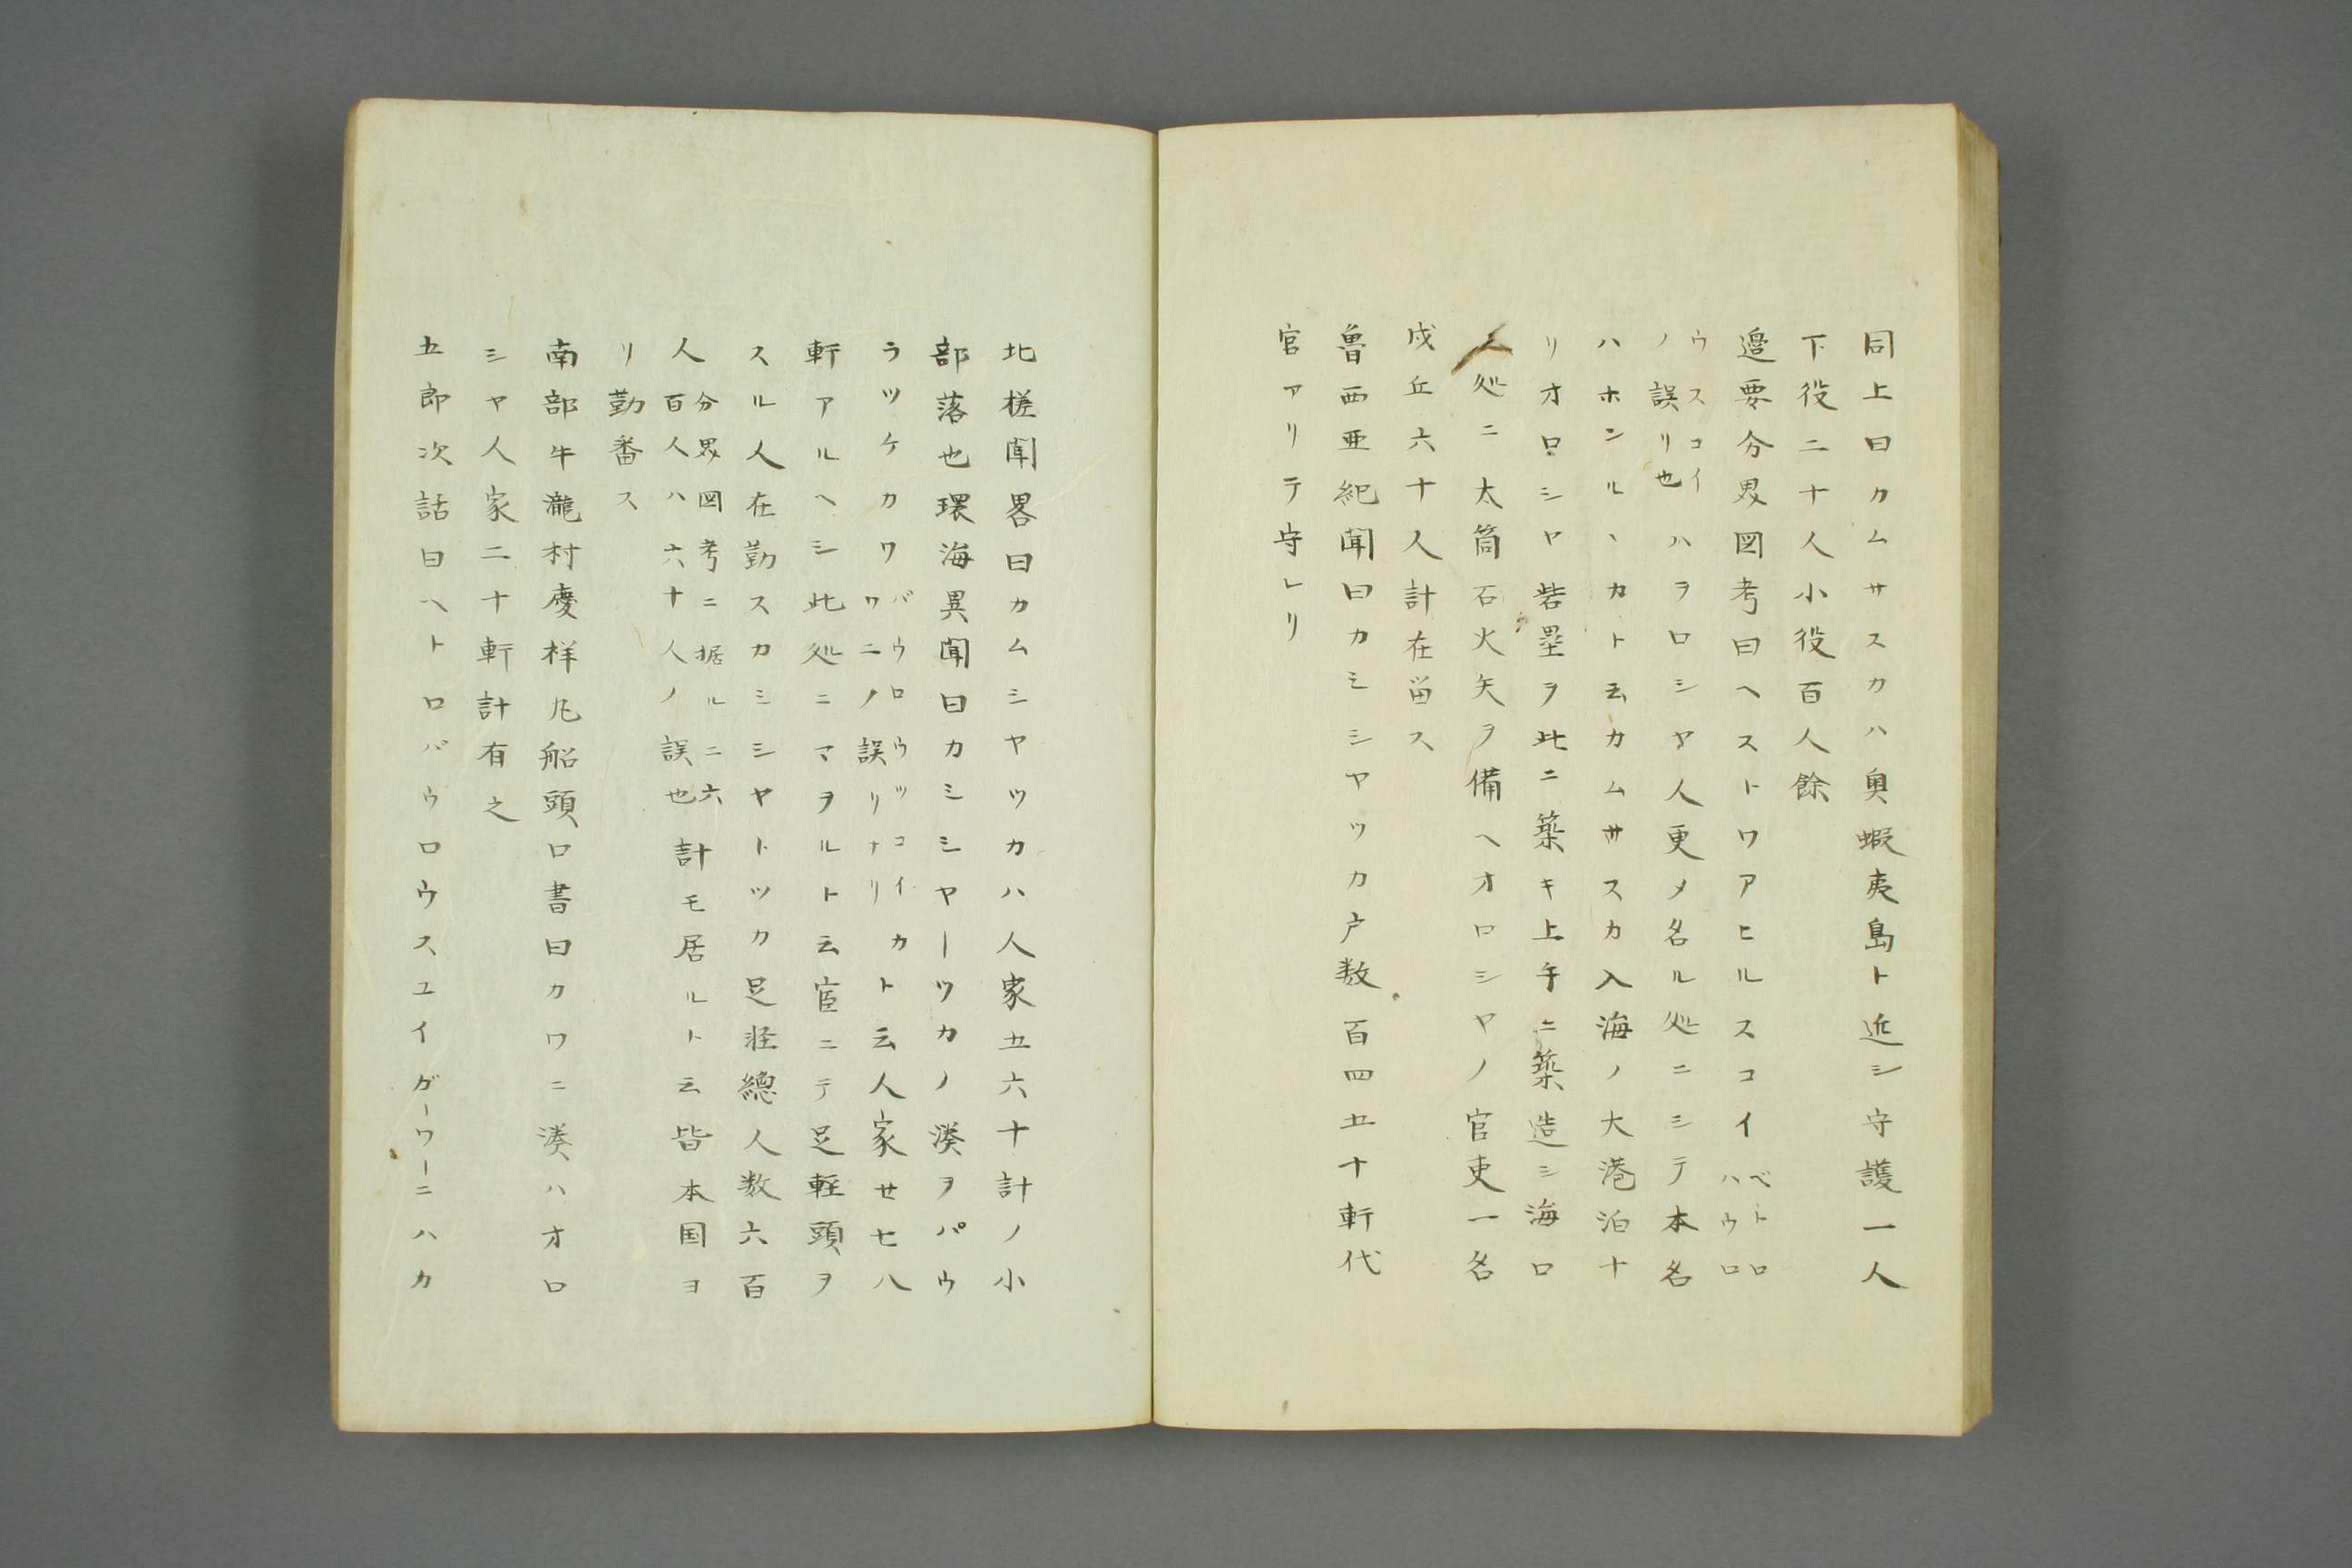 同上曰カムサスカハ奥蝦夷島ト近シ守護一人
下役二十人小役百人餘
邉要分界図考曰ヘストワアヒルスコイ
ベトロ
ハウロ
ウスコイ
ノ誤リ也
ハヲロシヤ人更メ名ル処ニシテ本名
ハホンルヽカト云カムサスカ入海ノ大港泊ナ
リオロシヤ砦塁ヲ此ニ築キ上手ニ築造シ海口
三処ニ大筒石火矢ヲ備ヘオロシヤノ官吏一名
戍兵六十人計在留ス
魯西亜紀聞曰カミシヤツカ戸数百四五十軒代
官アリテ守レリ
北槎聞畧曰カムシヤツカハ人家五六十計ノ小
部落也環海異聞曰カミシヤーツカノ湊ヲパウ
ラツケカワ
バウロウツコイカ
ワニノ誤リナリ
ト云人家せ七八
軒アルヘシ此処ニマヲルト云宦ニテ足軽頭ヲ
スル人在勤スカミシヤトツカ足軽總人数六百
人
分界図考ニ据ルニ六
百人ハ六十人ノ誤也
計モ居ルト云皆本国ヨ
リ勤番ス
南部牛瀧村慶祥丸船頭口書曰カワニ湊ハオロ
シヤ人家二十軒計有之
五郎次話曰ヘトロバウロウスユイガーワーニハカ